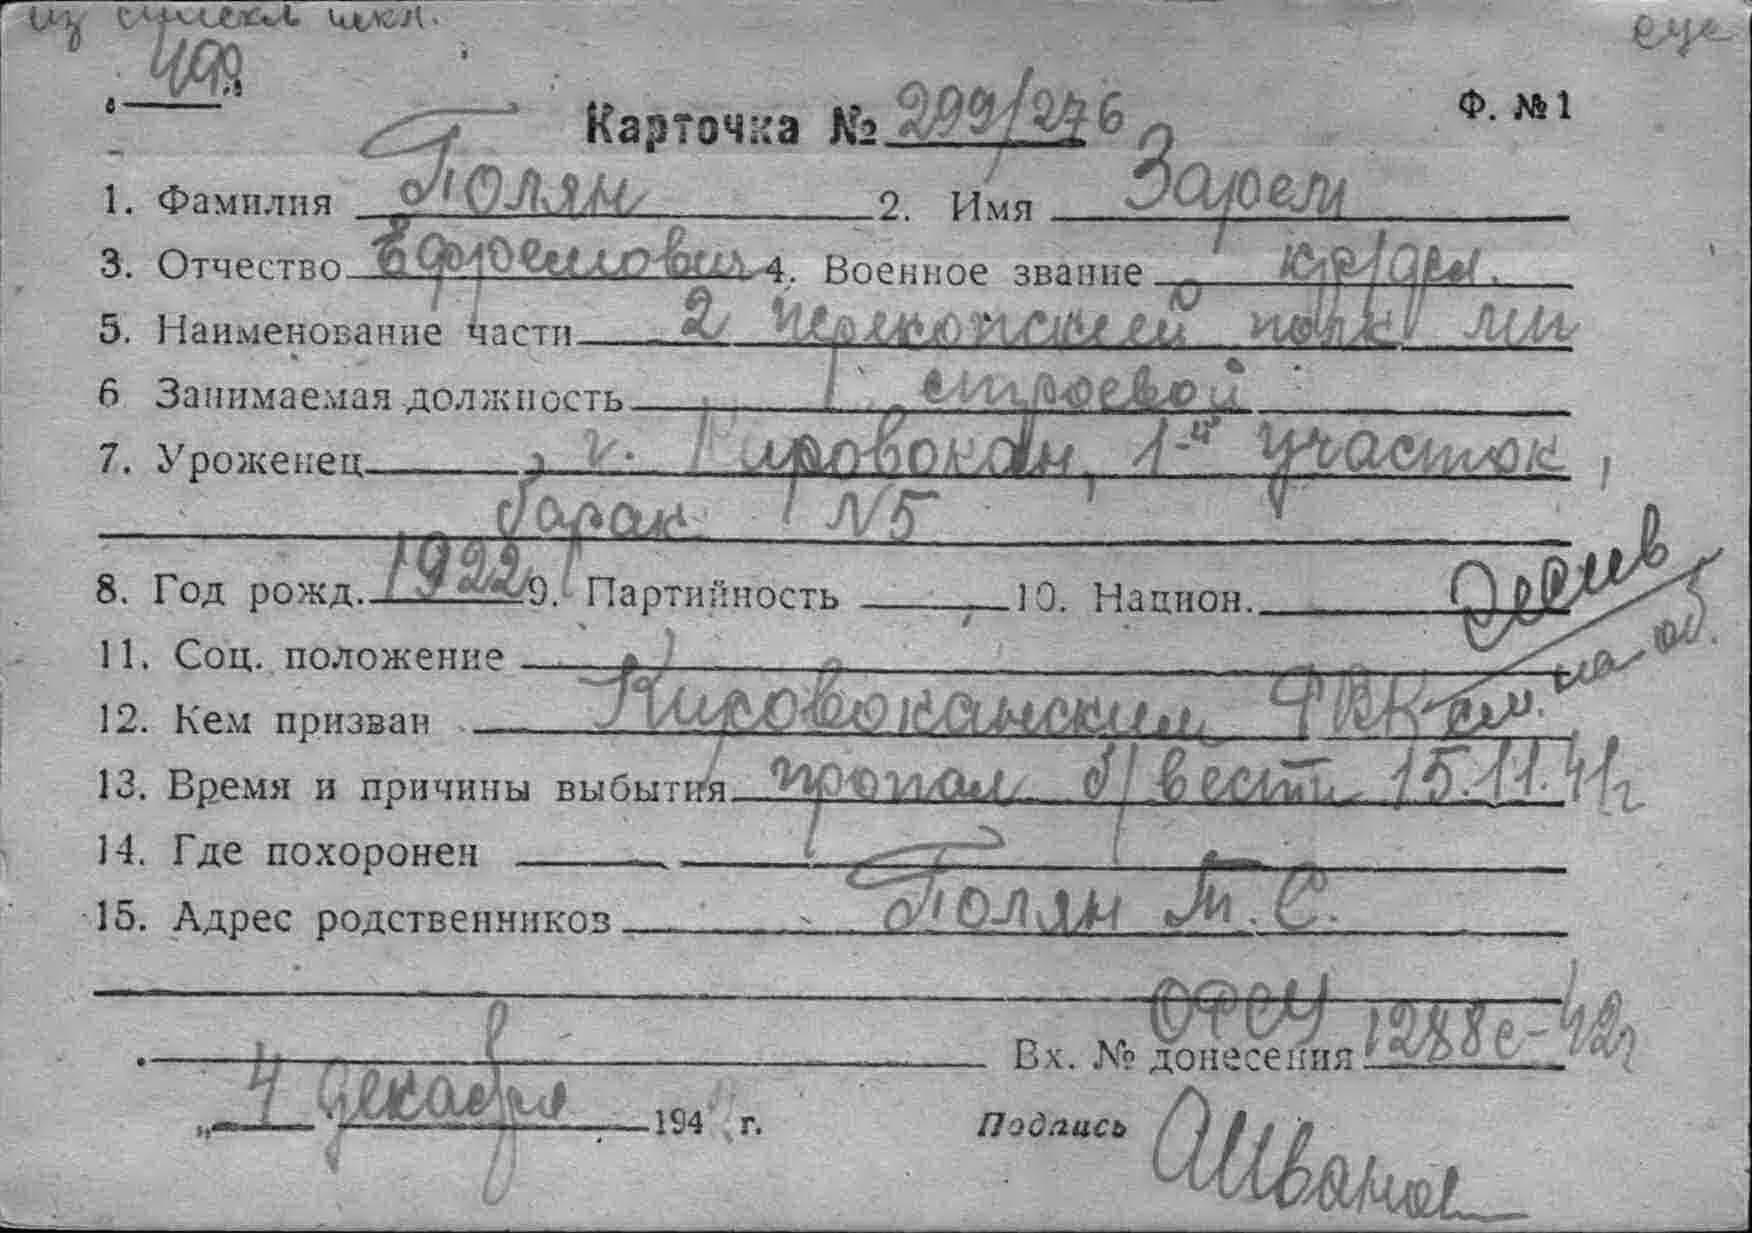 из списка искл.
еще
Карточка № 299/276 Ф. № 1
1. Фамилия Полян 2. Имя Зарем
3. Отчество Ефремович 4. Военное звание кр/дел.
5. Наименование части 2 перекопский полк мп
6 Занимаемая должность строевой
7. Уроженец г. Кировокан, 1-й участок,
барак N5
8. Год рожд. 1922 9. Партийность 10. Национ.
11. Соц. положение
12. Кем призван Кировоканским РВК см. на об.
13. Время и причины выбытия пропал б/вести 15.11.41г
14. Где похоронен
15. Адрес родственников Полян Т. С.
ОФСУ
Вх. № донесения 1288с-42г
„ 4 декабря 194 г. Подпись АИванов